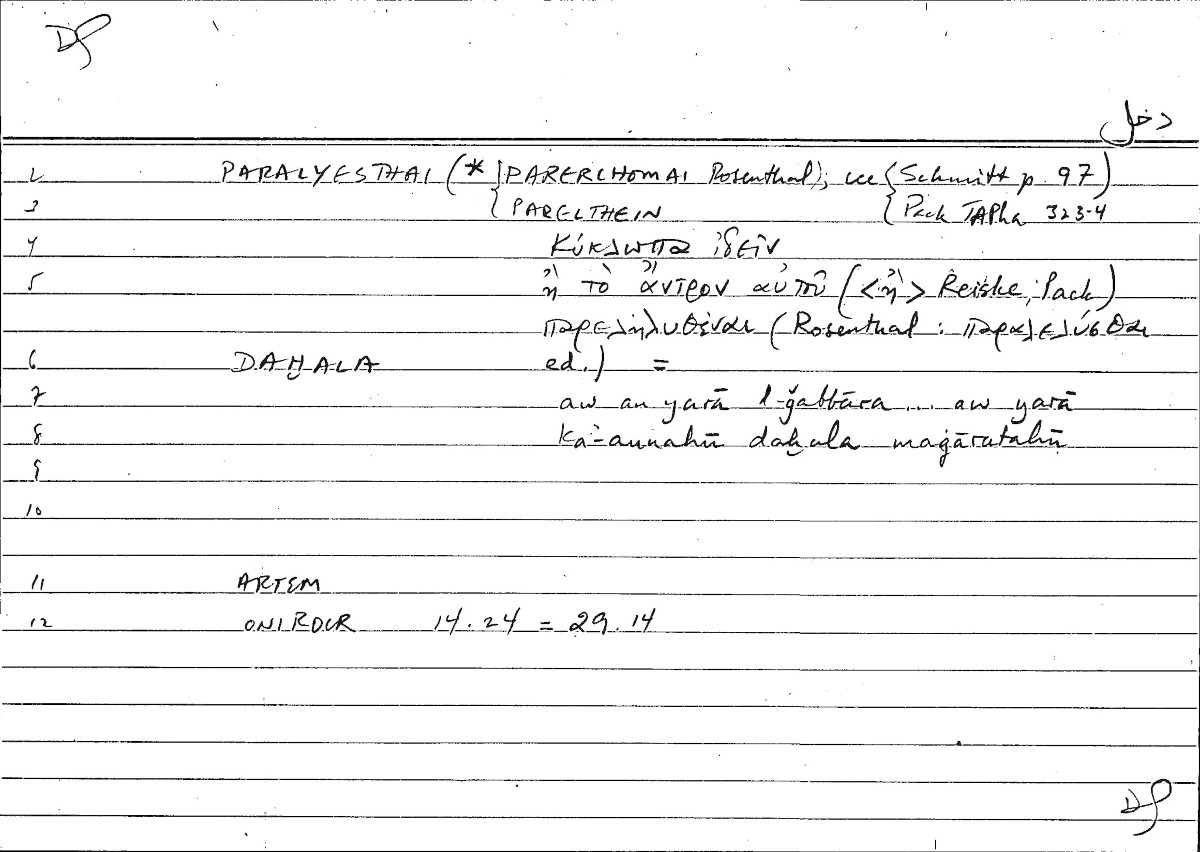 DG
دخل
2 PARALYESTHAI (* {PARERCHOMAI Rosenthal); see {Schmitt p. 97)
3 {PARELTHEIN {Pack TAPhA 323-4
4 Κύκλωπα ἰδεῖν
5 ἢ τὸ ἄντρον αὐτοῦ (<ἢ> Reiske, Pack)
παρεληλυθέναι (Rosenthal : παραλελύσθαι
6 DAḪALA ed.) =
7 aw an yarā l-ǧabbāra ... aw yarā
8 ka-annahū daḫala maġāratahū
9
10
11 ARTEM
12 ONIROCR 14.24 = 29.14
DG